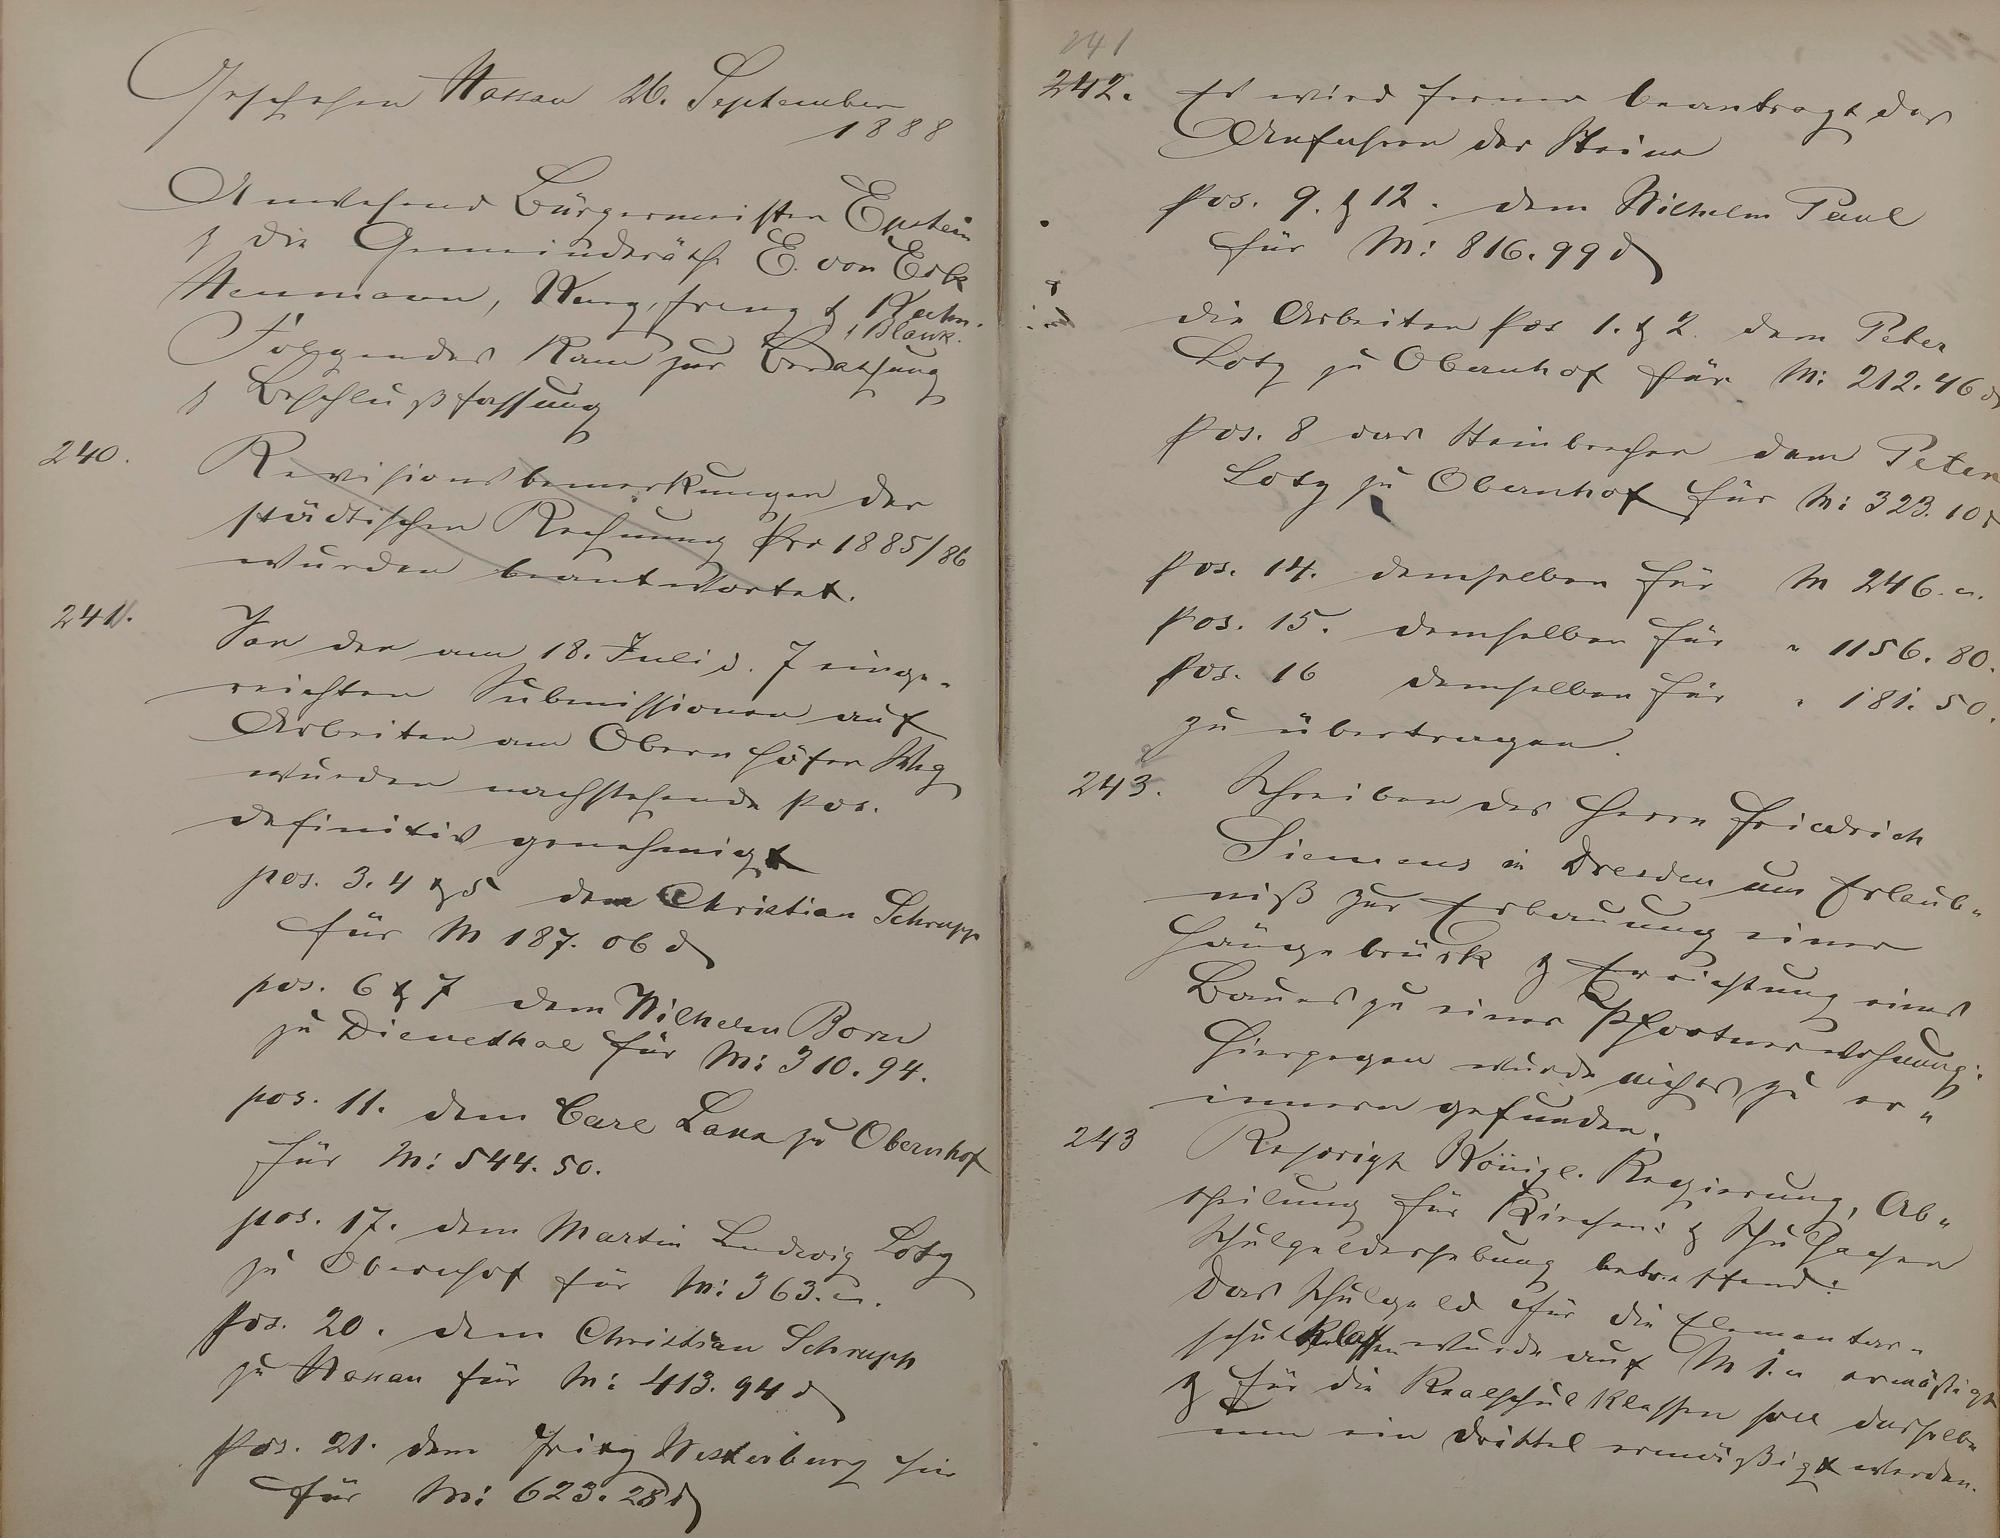 Geschehen Nassau 26. September
1888
Anwesend Bürgermeister Epstein
& die Gemeinderäthe E. von Erbe
Neumann, Krug, & Kuhn.
, Blank.
Folgendes kam zur Berathung
& Beschlußfassung
240.
Revisionsbemerkungen der
städtischen Rechnung pro 1885/86
wurden beantwortet.
241.
Von den am 18. Juli d. J einge-
reichten Submissionen auf
Arbeiten am Obernhöfer Weg
wurden nachstehende pos.
definitiv genehmigt
pos. 3. 4 & 5 dem Christian Schrupp
für M 187. 06 d
pos. 6 & 7 dem Wilhelm Born
zu Dienethal für M: 310. 94.
pos. 11. dem Carl Lana zu Obernhof
für M: 544. 50.
pos. 17. dem Martin Ludwig Lotz
zu Obernhof für M: 363. „.
Pos. 20. dem Christian Schrupp
zu Nassau für M: 413. 94 d
Pos. 21. dem Fritz Westerburg hier
für M: 623. 28 d
241
242.
Es wird ferner beantragt das
Anfahren der Steine
Pos. 9. & 12. dem Wilhelm Paul
für M: 816. 99 d
die Arbeiten Pos 1. & 2. dem Peter
Lotz zu Obernhof für M: 212. 46 d
Pos. 8 das Steinbrechen dem Peter
Lotz zu Obernhof für M: 323. 10 d
Pos. 14. demselben für M 246. „.
Pos. 15. demselben für „ 1156. 80.
Pos. 16 demselben für „ 181. 50.
zu übertragen.
243.
Schreiben des Herrn Friedrich
Siemens in Dresden um Erlaub-
niß zur Erbauung einer
Hängebrück & Errichtung eines
Baues zu einer Pfortnerwohnung.
Hiergegen wurde nichts zu er-
innern gefunden.
243
Reskript Königl. Regierung, Ab-
theilung für Kirchen: & Schulsachen
Schulgelderhebung betreffend:
Das Schulgeld für die Elementar-
schulklassen wurde auf M 1. „ ermäßigt
& für die Realschulklassen soll dasselbe
um ein Drittel ermäßigt werden.